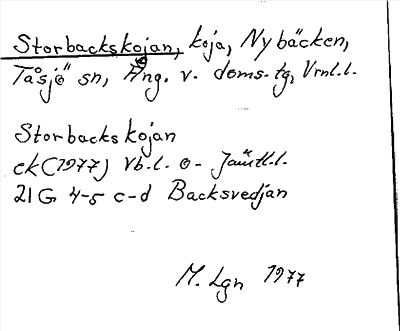 Storbackskojan, koja, Nybäcken,
Tåsjö sn, Ång. v. doms.tg, Vrnl.l.
Storbackskojan
ek (1977) Vb.l. o. Jämtl.l.
21G 4-5 c-d Backsvedjan
M. Lgn 1977